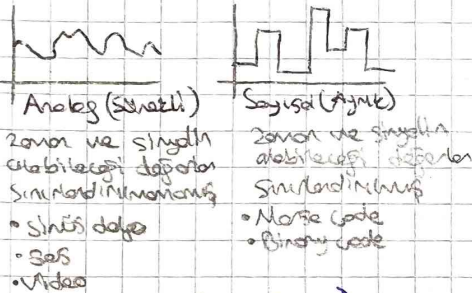 Analog (Sürekli)
zaman ve sinyalin
alabileceği değerler
sınırlandırılmamış
• sinüs dalga
• ses
• Video
Sayısal (Ayrık)
zaman ve sinyalin
alabileceği değerler
sınırlandırılmış
• Morse code
• Binary code